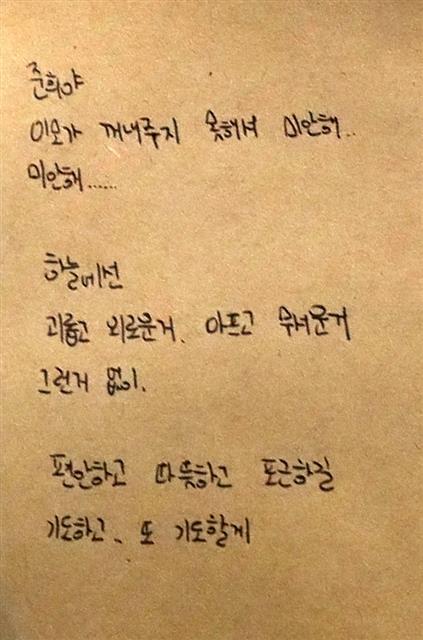 준희야
이모가 꺼내주지 못해서 미안해..
미안해......
하늘에선
괴롭고 외로운거, 아프고 무서운거
그런거 없이.
편안하고 따뜻하고 포근하길
기도하고, 또 기도할게